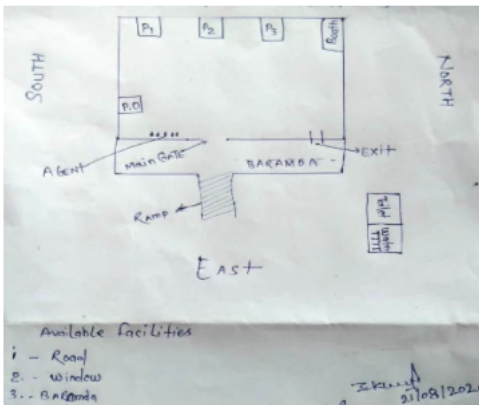 P1 P2 P3 Booth
SOUTH
NORTH
P.O
AGENT
MainGATE
BARAMDA
Exit
RAMP
EAST
Available facilities
1 - Road
2 - Window
3 - BARamda
21/08/202